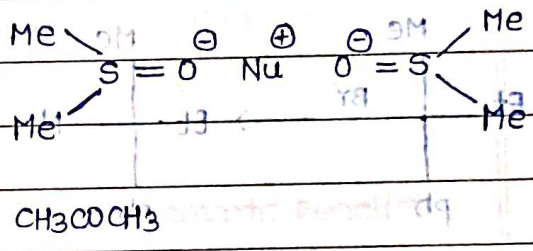 Me ⊖ ⊕ ⊖ Me
S = O Nu O = S
Me Me
CH3COCH3